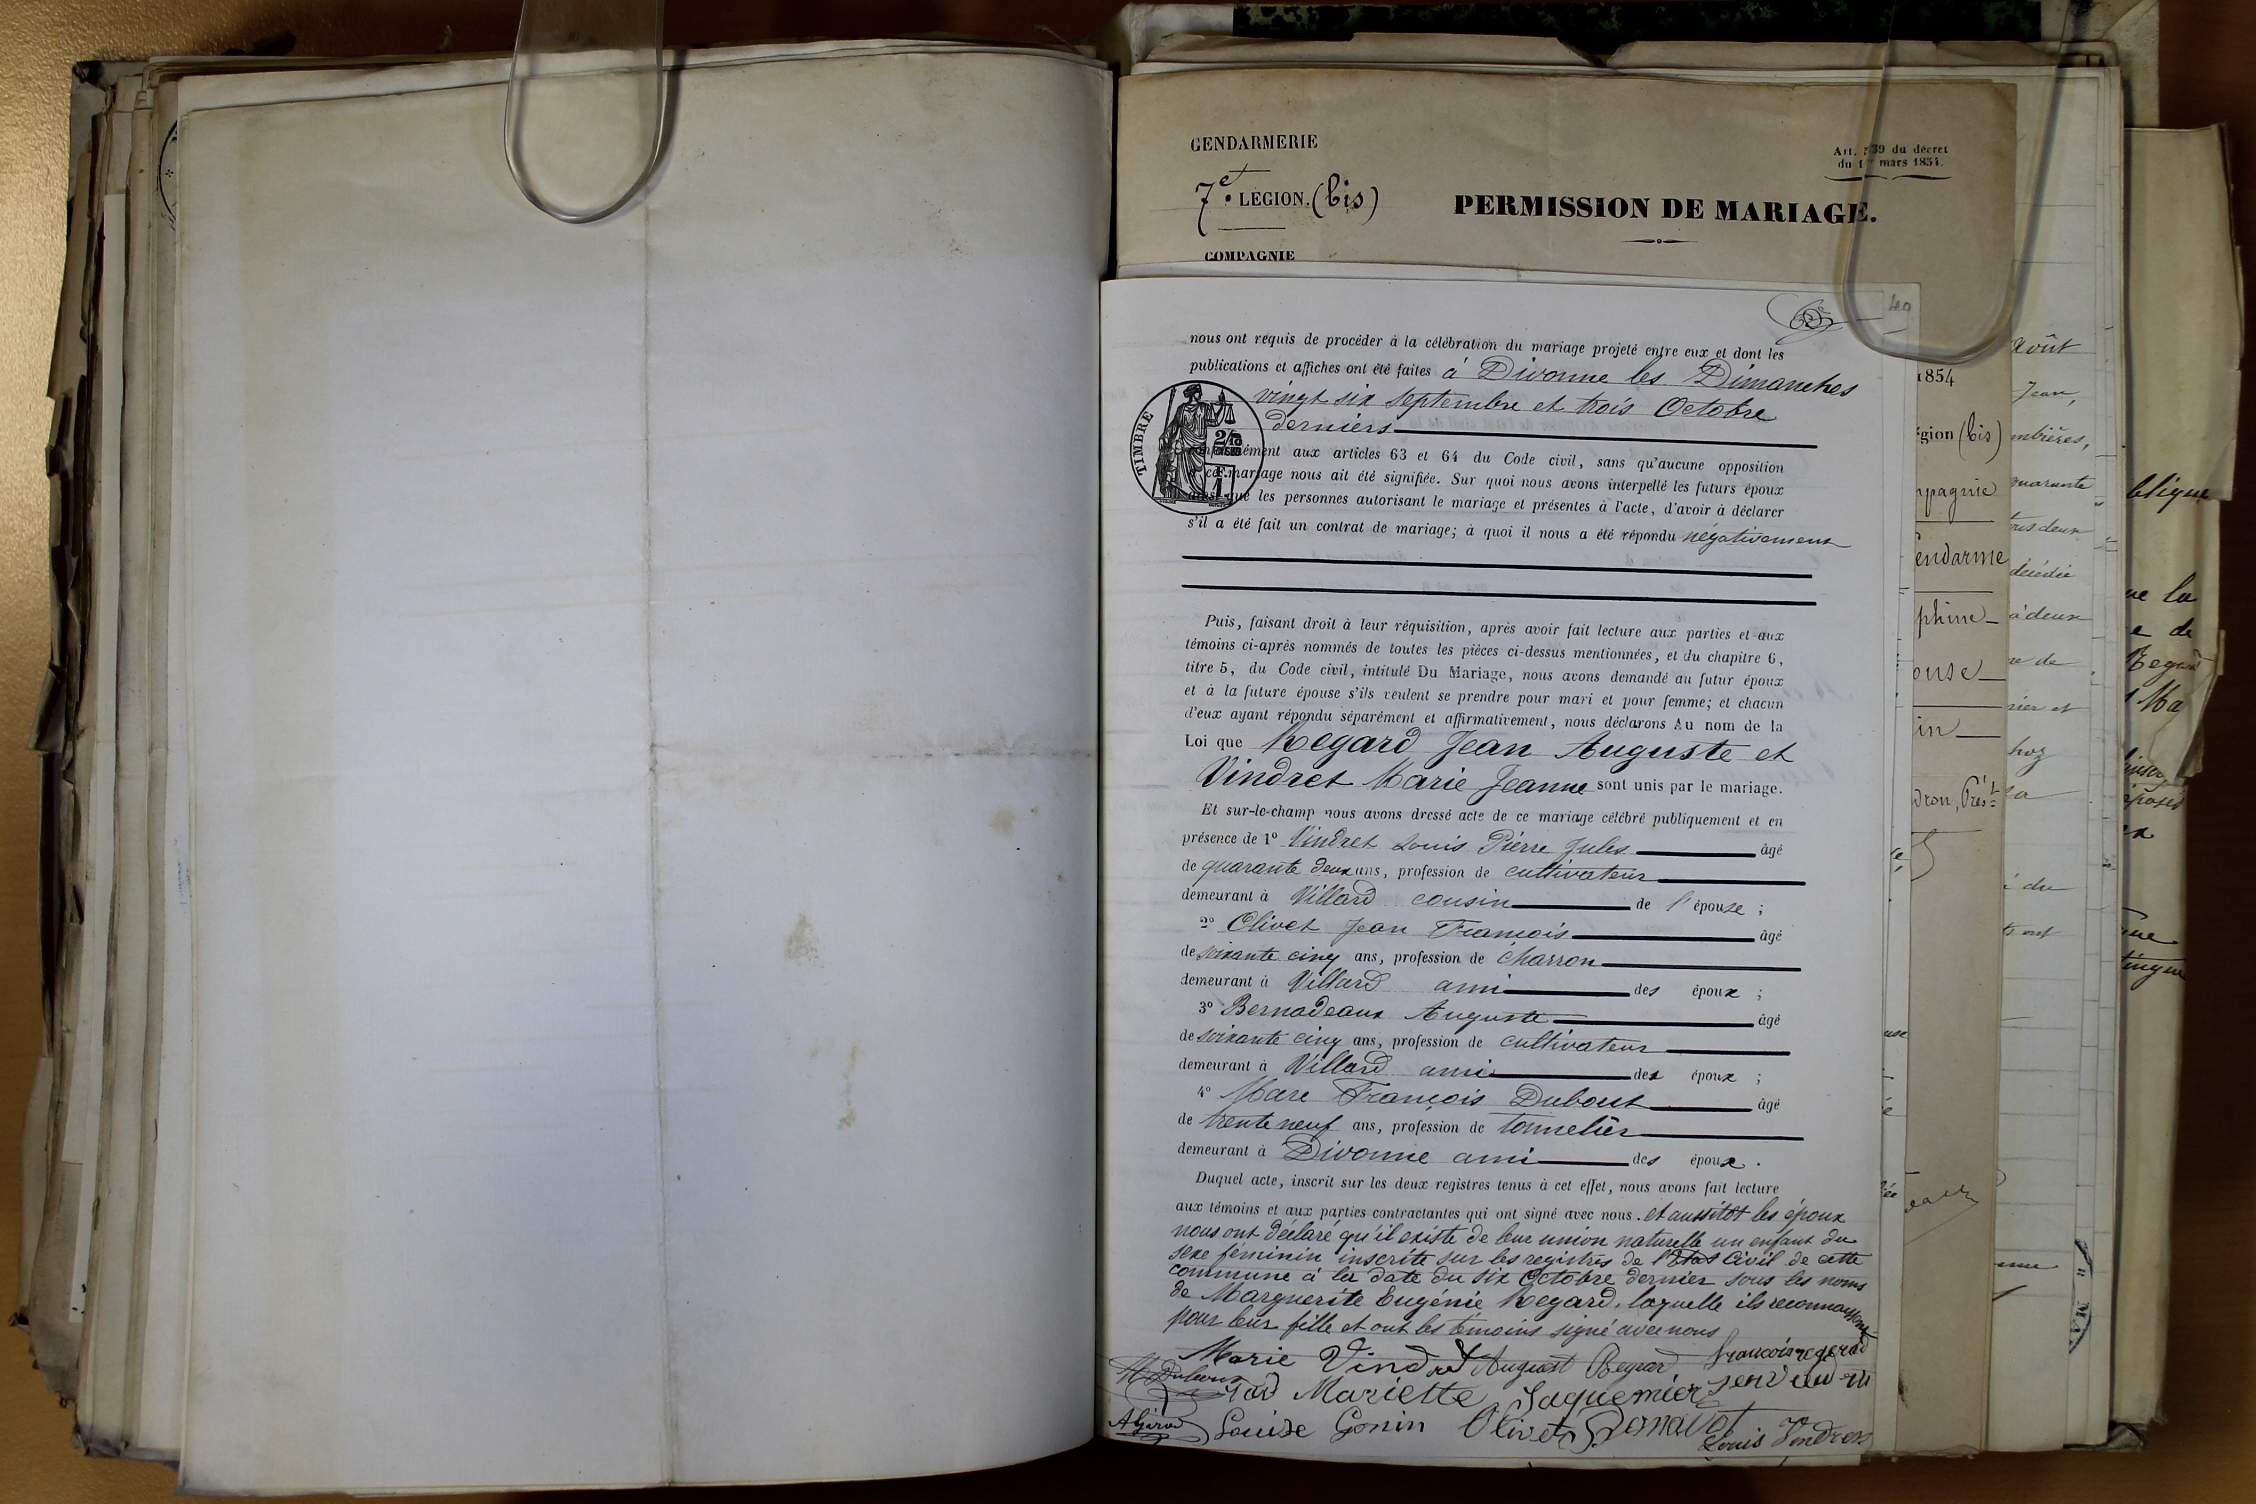 GENDARMERIE
Art. 539 du décret
du 1er mars 1854.
7e. LÉGION. (bis)
PERMISSION DE MARIAGE.
COMPAGNIE
40
nous ont requis de procéder à la célébration du mariage projeté entre eux et dont les
publications et affiches ont été faites à Divonne les Dimanches
vingt six septembre et trois Octobre
derniers
TIMBRE
2/10
conformément aux articles 63 et 64 du Code civil, sans qu'aucune opposition
à ce mariage nous ait été signifiée. Sur quoi nous avons interpellé les futurs époux
ainsi que les personnes autorisant le mariage et présentes à l'acte, d'avoir à déclarer
s'il a été fait un contrat de mariage; à quoi il nous a été répondu négativement
Puis, faisant droit à leur réquisition, après avoir fait lecture aux parties et aux
témoins ci-après nommés de toutes les pièces ci-dessus mentionnées, et du chapitre 6,
titre 5, du Code civil, intitulé Du Mariage, nous avons demandé au futur époux
et à la future épouse s'ils veulent se prendre pour mari et pour femme; et chacun
d'eux ayant répondu séparément et affirmativement, nous déclarons Au nom de la
Loi que Regard Jean Auguste et
Vindret Marie Jeanne sont unis par le mariage.
Et sur-le-champ nous avons dressé acte de ce mariage célébré publiquement et en
présence de 1º Vindret Louis Pierre Jules âgé
de quarante deux ans, profession de cultivateur
demeurant à Villard cousin de l'épouse ;
2º Olivet Jean François âgé
de soixante cinq ans, profession de charron
demeurant à Villard ami des époux ;
3º Bernadeaux Auguste âgé
de soixante cinq ans, profession de cultivateur
demeurant à Villard ami des époux ;
4º Marc François Dubout âgé
de trente neuf ans, profession de tonnelier
demeurant à Divonne ami des époux .
Duquel acte, inscrit sur les deux registres tenus à cet effet, nous avons fait lecture
aux témoins et aux parties contractantes qui ont signé avec nous. et aussitôt les époux
nous ont déclaré qu'il existe de leur union naturelle un enfant du
sexe féminin inscrite sur les registres de l'Etat Civil de cette
commune à la date du six Octobre dernier sous les noms
de Marguerite Eugénie Regard, laquelle ils reconnaissent
pour leur fille et ont les témoins signé avec nous
Marie Vindret August Regard francois regard
Mariette Jaquemier
A Girod Louise Gonin Olivet
Louis Vindret
août
1854
Jean,
égion (bis)
mbières,
quarante
mpagnie
endarme
décédée
phine
à deux
ouse
re de
in
dron, Prést
blique
ne la
e de
Ma